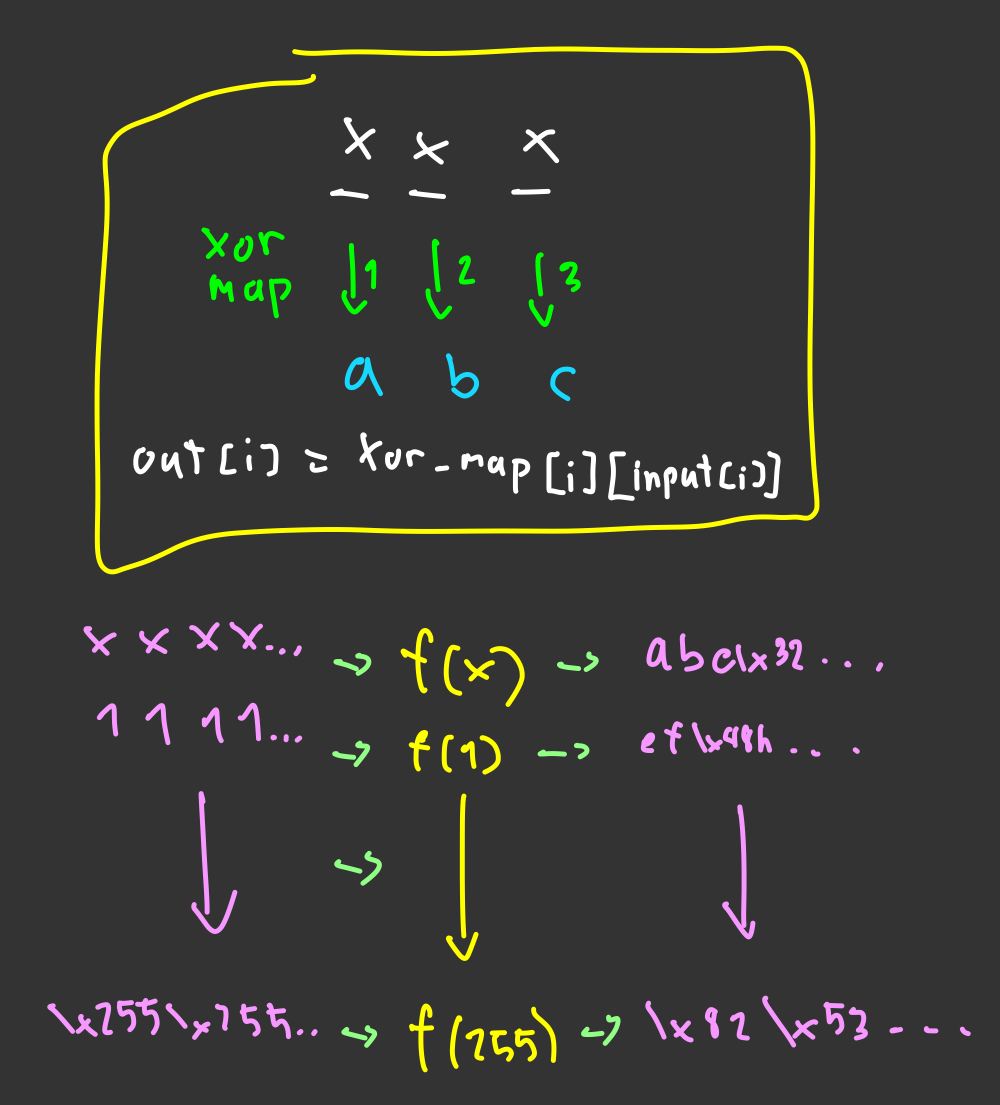 x x x
xor
map
1 2 3
a b c
out[i] = xor_map[i][input[i]]
x x x x... → f(x) → abc\x32...
1 1 1 1... → f(1) → ef\x98h....
→
\x255\x255.. → f(255) → \x82\x53...